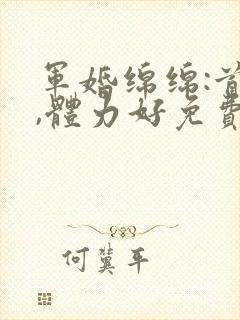 軍婚綿綿:首
,體力好免費
何冀平